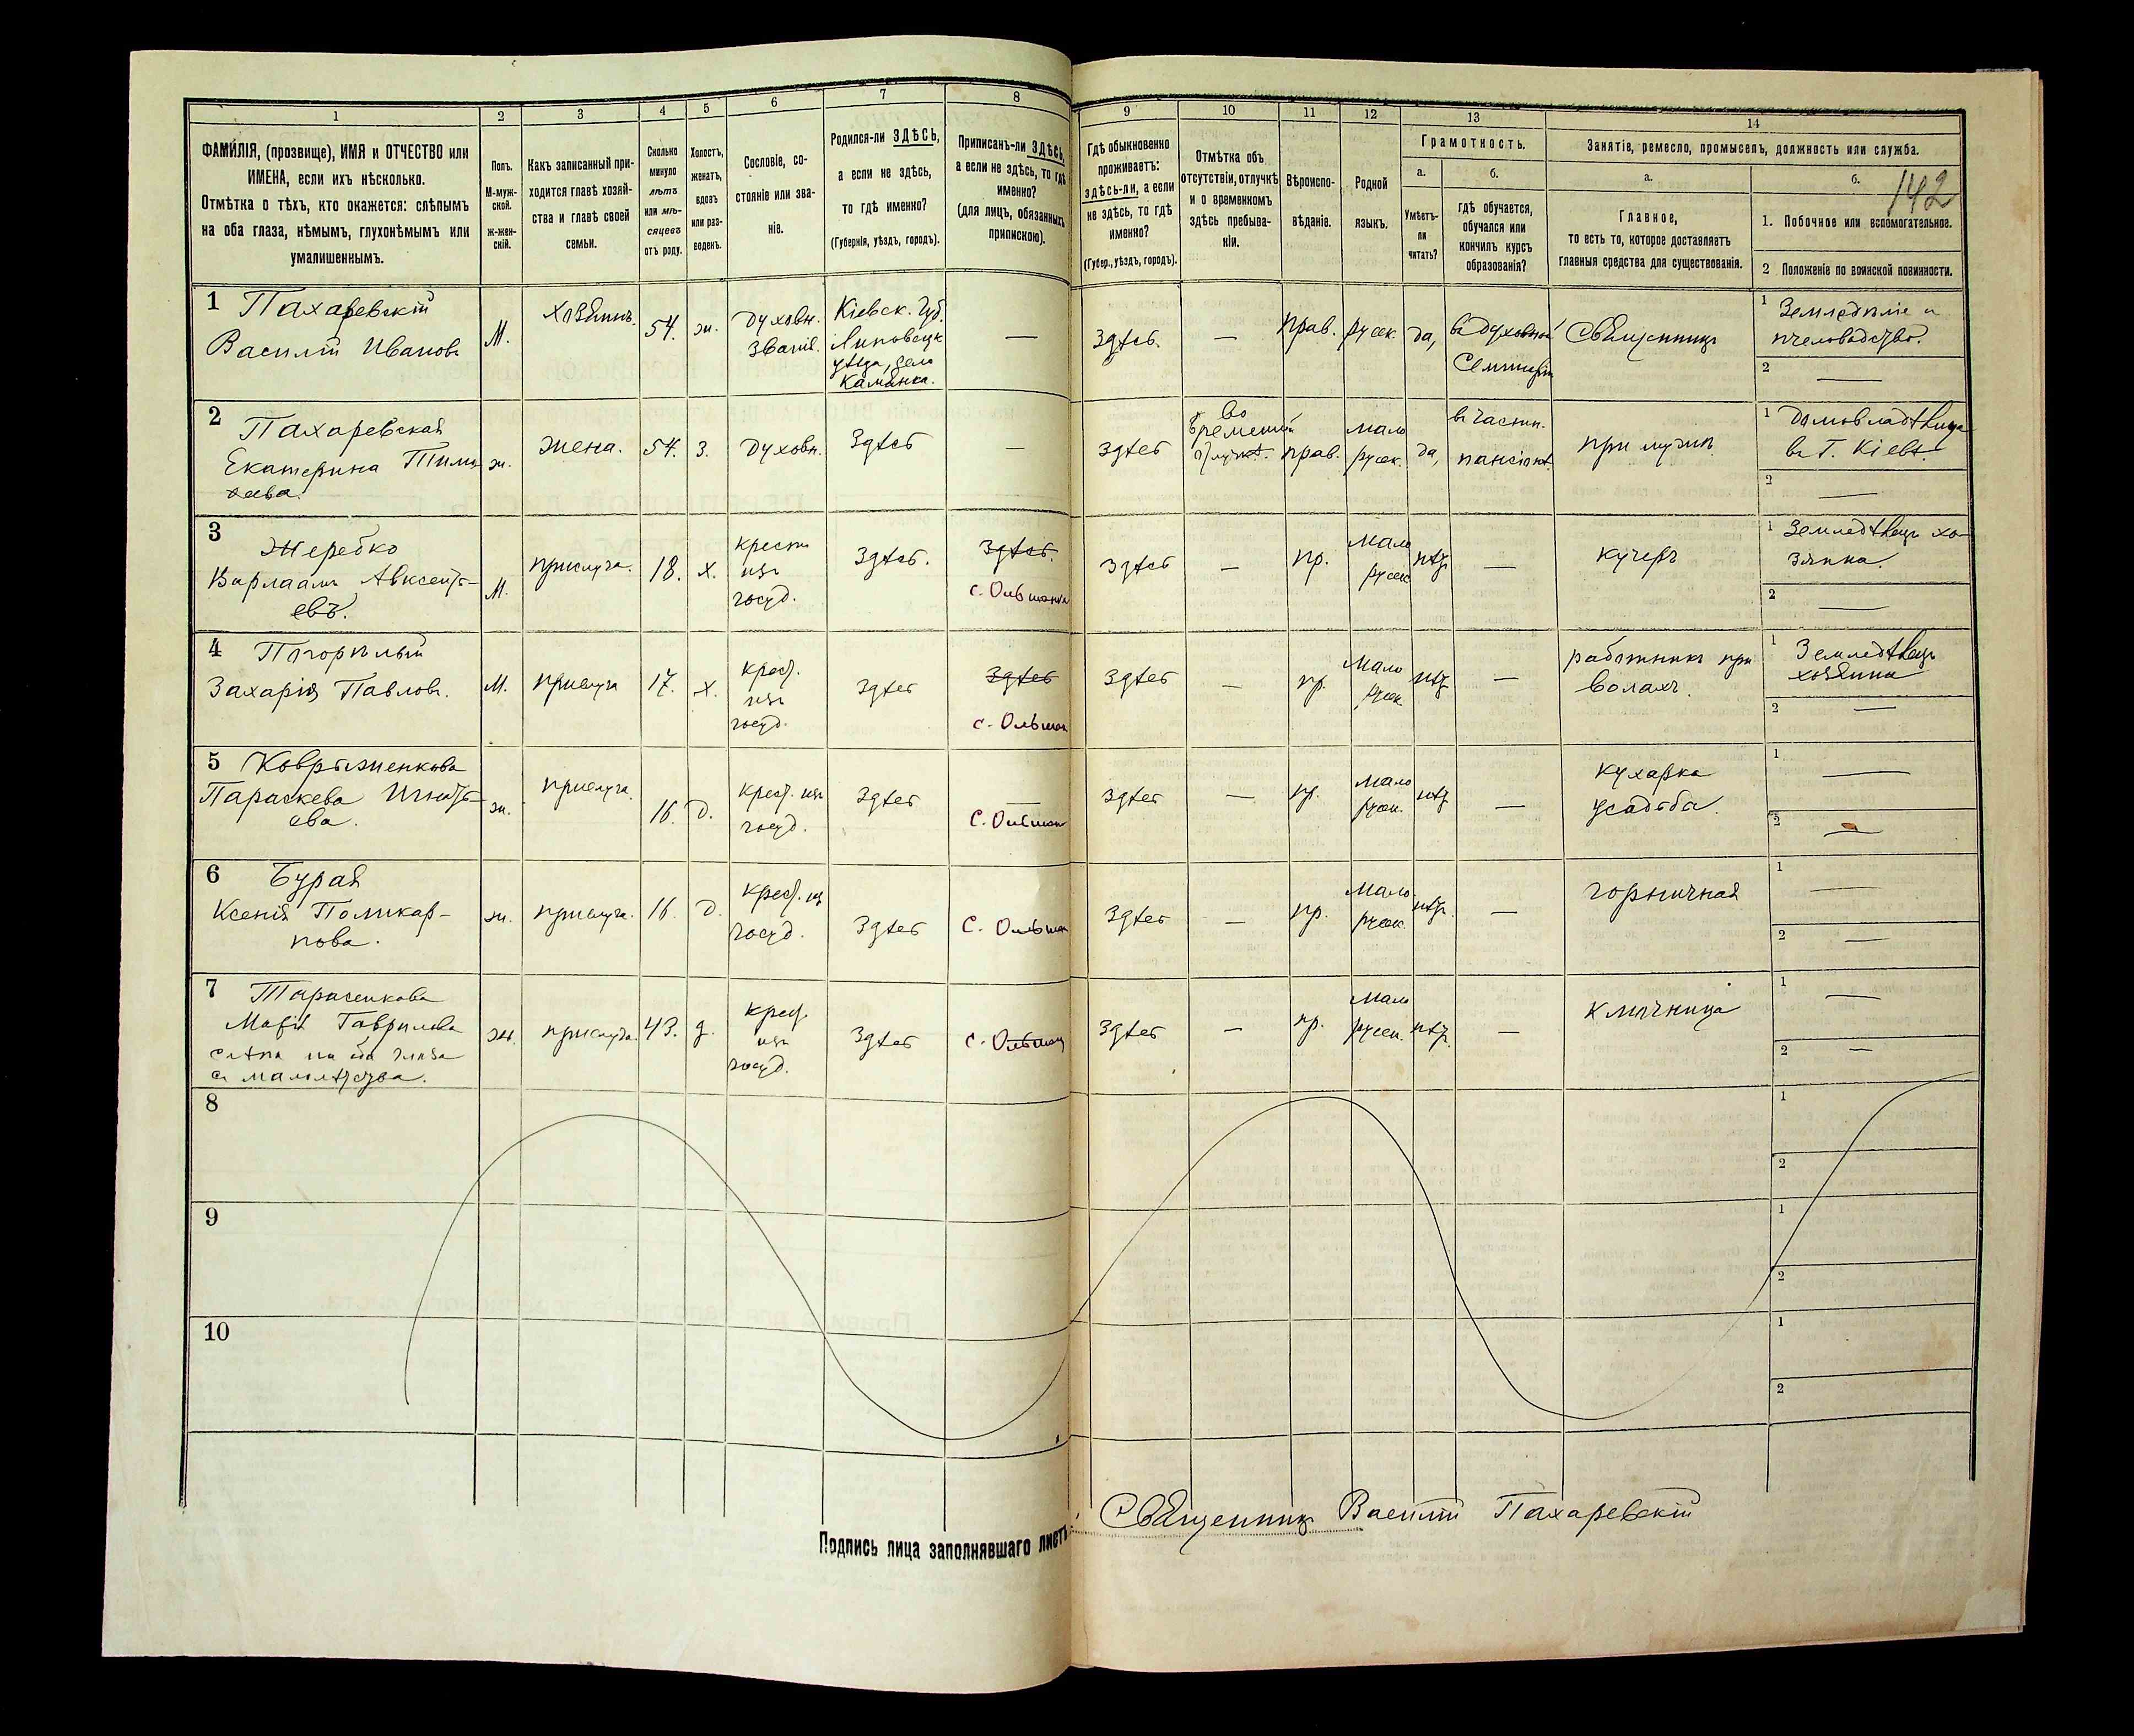 1
2
3
4
5
6
7
8
9
10
11
12
13
14
ФАМИЛІЯ, (прозвище), ИМЯ и ОТЧЕСТВО или
ИМЕНА, если ихъ нѣсколько.
Отмѣтка о тѣхъ, кто окажется: слѣпымъ
на оба глаза, нѣмымъ, глухонѣмымъ или
умалишеннымъ.
Полъ.
М-муж-
ской.
ж-жен-
скій.
Какъ записанный при-
ходится главѣ хозяй-
ства и главѣ своей
семьи.
Сколько
минуло
лѣтъ
или мѣ-
сяцевъ
отъ роду.
Холостъ,
женатъ,
вдовъ
или раз-
веденъ.
Сословіе, со-
стояніе или зва-
ніе.
Родился-ли ЗДѢСЬ,
а если не здѣсь,
то гдѣ именно?
(Губернія, уѣздъ, городъ).
Приписанъ-ли ЗДѢСЬ,
а если не здѣсь, то гдѣ
именно?
(для лицъ, обязанныхъ
припискою).
Гдѣ обыкновенно
проживаетъ:
здѣсь-ли, а если
не здѣсь, то гдѣ
именно?
(Губер., уѣздъ, городъ).
Отмѣтка объ
отсутствіи, отлучкѣ
и о временномъ
здѣсь пребыва-
ніи.
Вѣроиспо-
вѣданіе.
Родной
языкъ.
Грамотность.
а.
Умѣетъ-
ли
читать?
б.
гдѣ обучается,
обучался или
кончилъ курсъ
образованія?
Занятіе, ремесло, промыселъ, должность или служба.
а.
Главное,
то есть то, которое доставляетъ
главныя средства для существованія.
б.
142
1. Побочное или вспомогательное.
2 Положеніе по воинской повинности.
1 Пахаревскій
Василій Ивановъ
М.
Хозяинъ.
54.
ж.
Духовн.
званія.
Кіевск. Губ.
Липовецк
уѣзда, села
Каменка.
—
Здѣсь.
—
прав.
русск.
да,
въ духовной
Семинаріи
Священникъ
1 Земледѣліе и
пчеловодство.
2 —
2 Пахаревская
Екатерина Тимо
ѳеева.
ж.
жена.
54.
З.
Духовн.
Здѣсь
—
Здѣсь
во
временной
отлучкѣ.
прав.
мало
русск.
да,
въ частн.
пансіонѣ.
при мужѣ.
1 Домовладѣлица
въ Г. Кіевѣ.
2 —
3 Жеребко
Варлаамъ Авксенть-
евъ.
М.
прислуга.
18.
х.
крест
изъ
госуд.
Здѣсь.
Здѣсь.
с. Ольшанка
Здѣсь
—
пр.
мало
русск
нѣт
—
кучеръ
1 Земледѣлецъ хо-
зяина.
2 —
4 Погорѣлый
Захарія Павловъ.
М.
прислуга
17.
х.
крест.
изъ
госуд.
Здѣсь
Здѣсь
с. Ольшан
Здѣсь
—
пр.
мало
русск
нѣт
—
работникъ при
волахъ.
1 Земледѣлецъ
хозяина
2 —
5 Коврыженкова
Параскева Игнать-
ева.
ж.
прислуга.
16.
д.
крест. изъ
госуд.
Здѣсь
—
С. Ольшан
Здѣсь
—
пр.
мало
русск.
нѣт
—
кухарка
усадьба.
1 —
2 —
6 Бурая
Ксенія Поликар-
пова.
ж.
прислуга.
16.
д.
крест. изъ
госуд.
Здѣсь
С. Ольшан
Здѣсь
—
пр.
мало
русск.
нѣт.
—
горничная
1 —
2 —
7 Тарасенкова
Марія Гаврилова
слѣпа на оба глаза
съ малолѣтства.
ж.
прислуга.
43.
д.
крест.
изъ
госуд.
Здѣсь
с. Ольшан
Здѣсь
—
пр.
мало
русск.
нѣт.
—
ключница
1 —
2 —
8
1
2
9
1
2
10
1
2
Подпись лица заполнявшаго листъ:
Священникъ Василій Пахаревскій